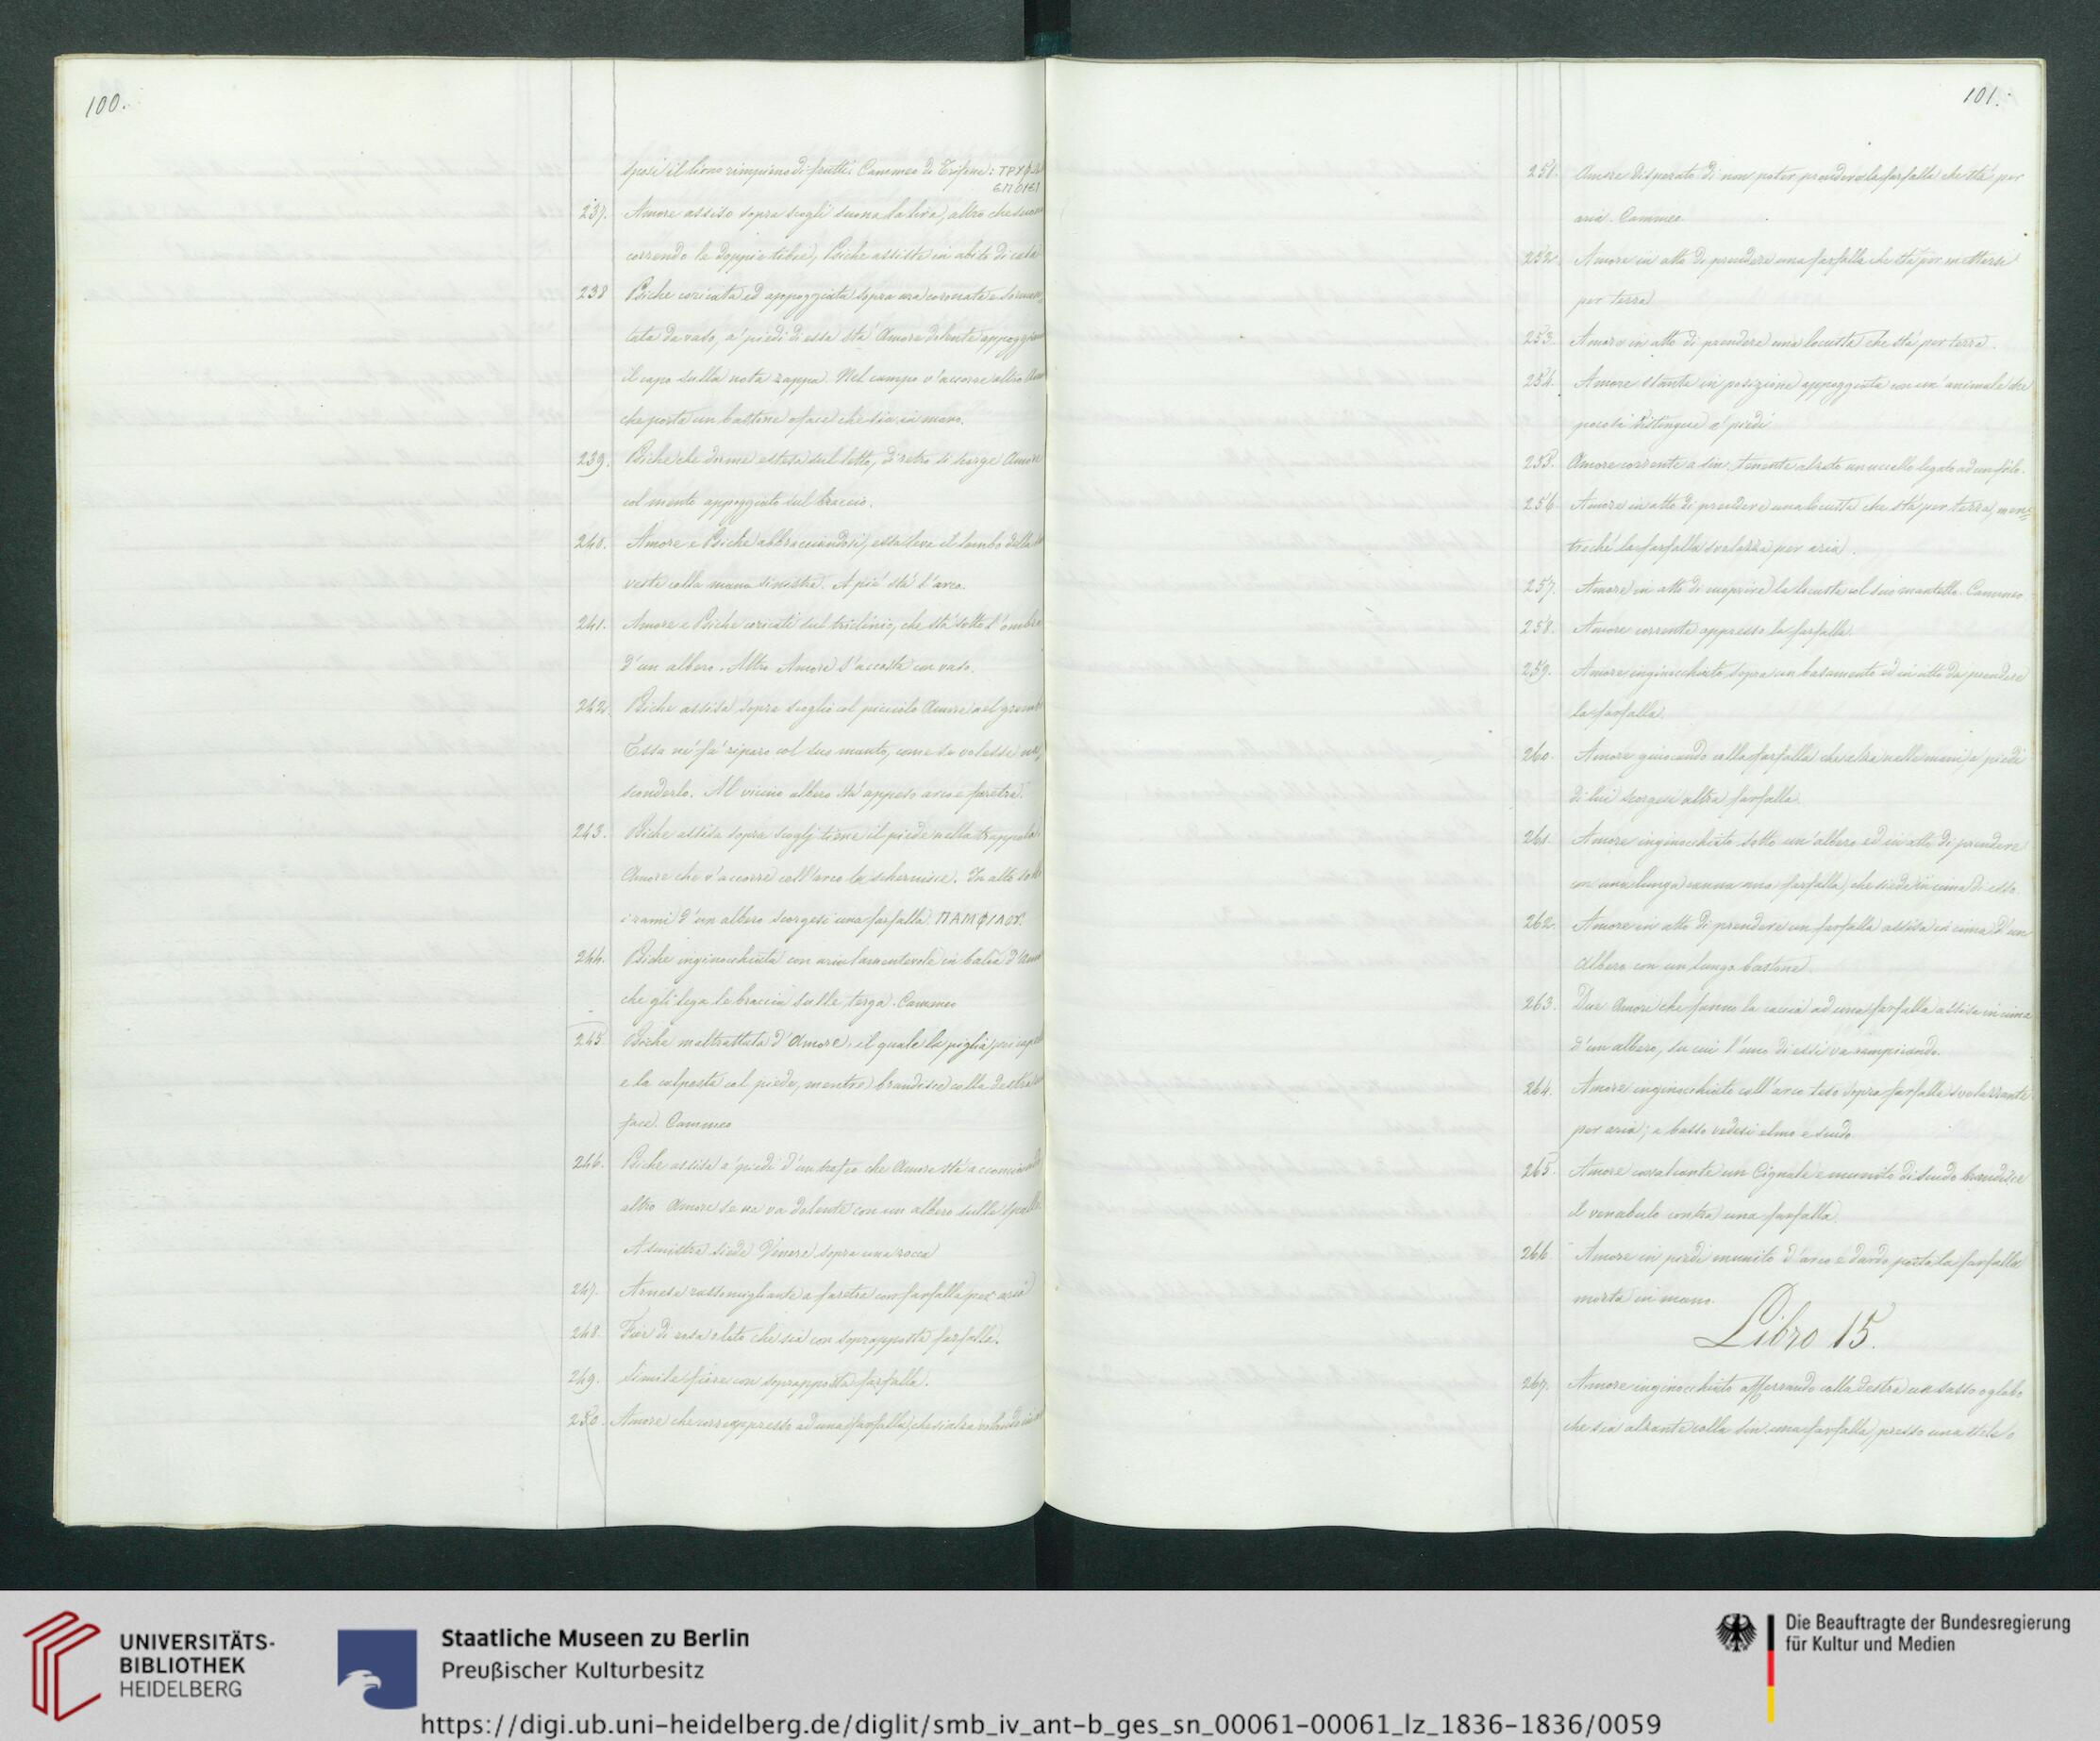 100.
sposi il          rimpieno di frutti. Cammeo di Trifone: ΤΡΥΦΩ
ΕΠΟΙΕΙ
237. Amore assiso sopra scogli suona la lira, altro che suona
correndo le doppie tibie, Psiche assiste in abito di
238 Psiche coricata ed appoggiata sopra ara coronata e
tata da vaso, a' piedi di essa stà Amore dolente
il capo sulla nota zappa. Nel campo v'accorre altro
che porta un bastone o face che sia in mano.
239. Psiche che dorme estesa sul letto, di retro si scorge Amore
col mento appoggiato sul braccio.
240. Amore e Psiche abbracciandosi, essa tiene il lembo della
veste colla mano sinistra. A piè stà l'arco.
241. Amore e Psiche coricati sul triclinio, che stà sotto l'ombra
d'un albero. Altro Amore s'accosta con vaso.
242. Psiche assisa sopra scoglio col piccolo Amore nel grembo
Essa nè fà riparo col suo manto, come se volesse na,
sconderlo. Al vicino albero stà appeso arco e faretra.
243. Psiche assisa sopra scoglj tiene il piede nella trappola.
Amore che v'accorre coll'arco la schernisce. In alto sotto
i rami d'un albero scorgesi una farfalla. ΠΑΜΦΙΛΟΥ.
244. Psiche inginocchiata con aria lamentevole in balìa d'Amor
che gli lega le braccia sulle terga. Cammeo
245 Psiche maltrattata d'Amore, il quale la piglia pei
e la calpesta col piede, mentre brandisce colla destra
face. Cammeo
246. Psiche assisa a' piedi d'un trofeo che Amore stà
altro Amore se ne va dolente con un albero sulle spalle.
A sinistra siede Venere sopra una rocca
247. Arnese rassomigliante a faretra con farfalla per aria
248. Fior di rosa o loto che sia con soprapposta farfalla.
249. Simile fiore con soprapposta farfalla.
250. Amore che corre appresso ad una farfalla, che
101.
251. Amore disperato di non poter prendere la farfalla che stà per
aria. Cammeo
252. Amore in atto di prendere una farfalla che stà per mettersi
per terra
253. Amore in atto di prendere una locusta che stà per terra.
254. Amore stante in posizione appoggiata con un'animale che
poco si distingue a' piedi
255. Amore corrente a sin. tenente alzato un uccello legato ad un filo.
256. Amore in atto di prendere una locusta che stà per terra, men=
trechè la farfalla svolazza per aria.
257. Amore in atto di cuoprire la locusta col suo mantello. Cammeo
258. Amore corrente appresso la farfalla.
259. Amore inginocchiato sopra un basamento ed in atto di prendere
la farfalla.
260. Amore giuocando colla farfalla che       nelle mani, a' piedi
di lui scorgesi altra farfalla.
261. Amore inginocchiato sotto un'albero ed in atto di prendere
con una lunga canna una farfalla, che siede in cima di esso.
262. Amore in atto di prendere un farfalla assisa in cima d'un
albero con un lungo bastone.
263. Due Amori che fanno la caccia ad una farfalla assisa in cima
d'un albero, su cui l'uno di essi va rampicando.
264. Amore inginocchiato coll'arco teso sopra farfalla svolazzante
per aria; a basso vedesi elmo e scudo
265. Amore cavalcante un Cignale e munito di scudo brandisce
il venabulo contra una farfalla.
266. Amore in piedi munito d'arco e dardo porta la farfalla
morta in mano.
Libro 15.
267. Amore inginocchiato afferrando colla destra un sasso o globo
che sia alzante colla sin. una farfalla, presso una stele o
UNIVERSITÄTS-
BIBLIOTHEK
HEIDELBERG
Staatliche Museen zu Berlin
Preußischer Kulturbesitz
Die Beauftragte der Bundesregierung
für Kultur und Medien
https://digi.ub.uni-heidelberg.de/diglit/smb_iv_ant-b_ges_sn_00061-00061_lz_1836-1836/0059